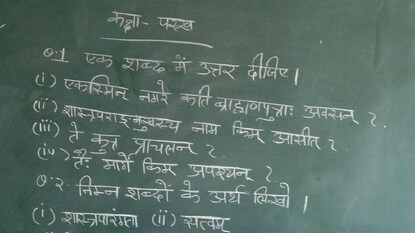 कक्षा - परख
Q.1 एक शब्द में उत्तर दीजिए।
(i) एकस्मिन् नगरे कति ब्राह्मणपुत्राः अवसन् ?
(ii) शास्त्रपराङ्मुखस्य नाम किम् आसीत् ?
(iii) ते कुत्र प्राचलन् ?
(iv) तैः मार्गे किम् अपश्यन् ?
Q.2. निम्न शब्दों के अर्थ लिखो।
(i) शास्त्रपारंगता (ii) सत्वम्